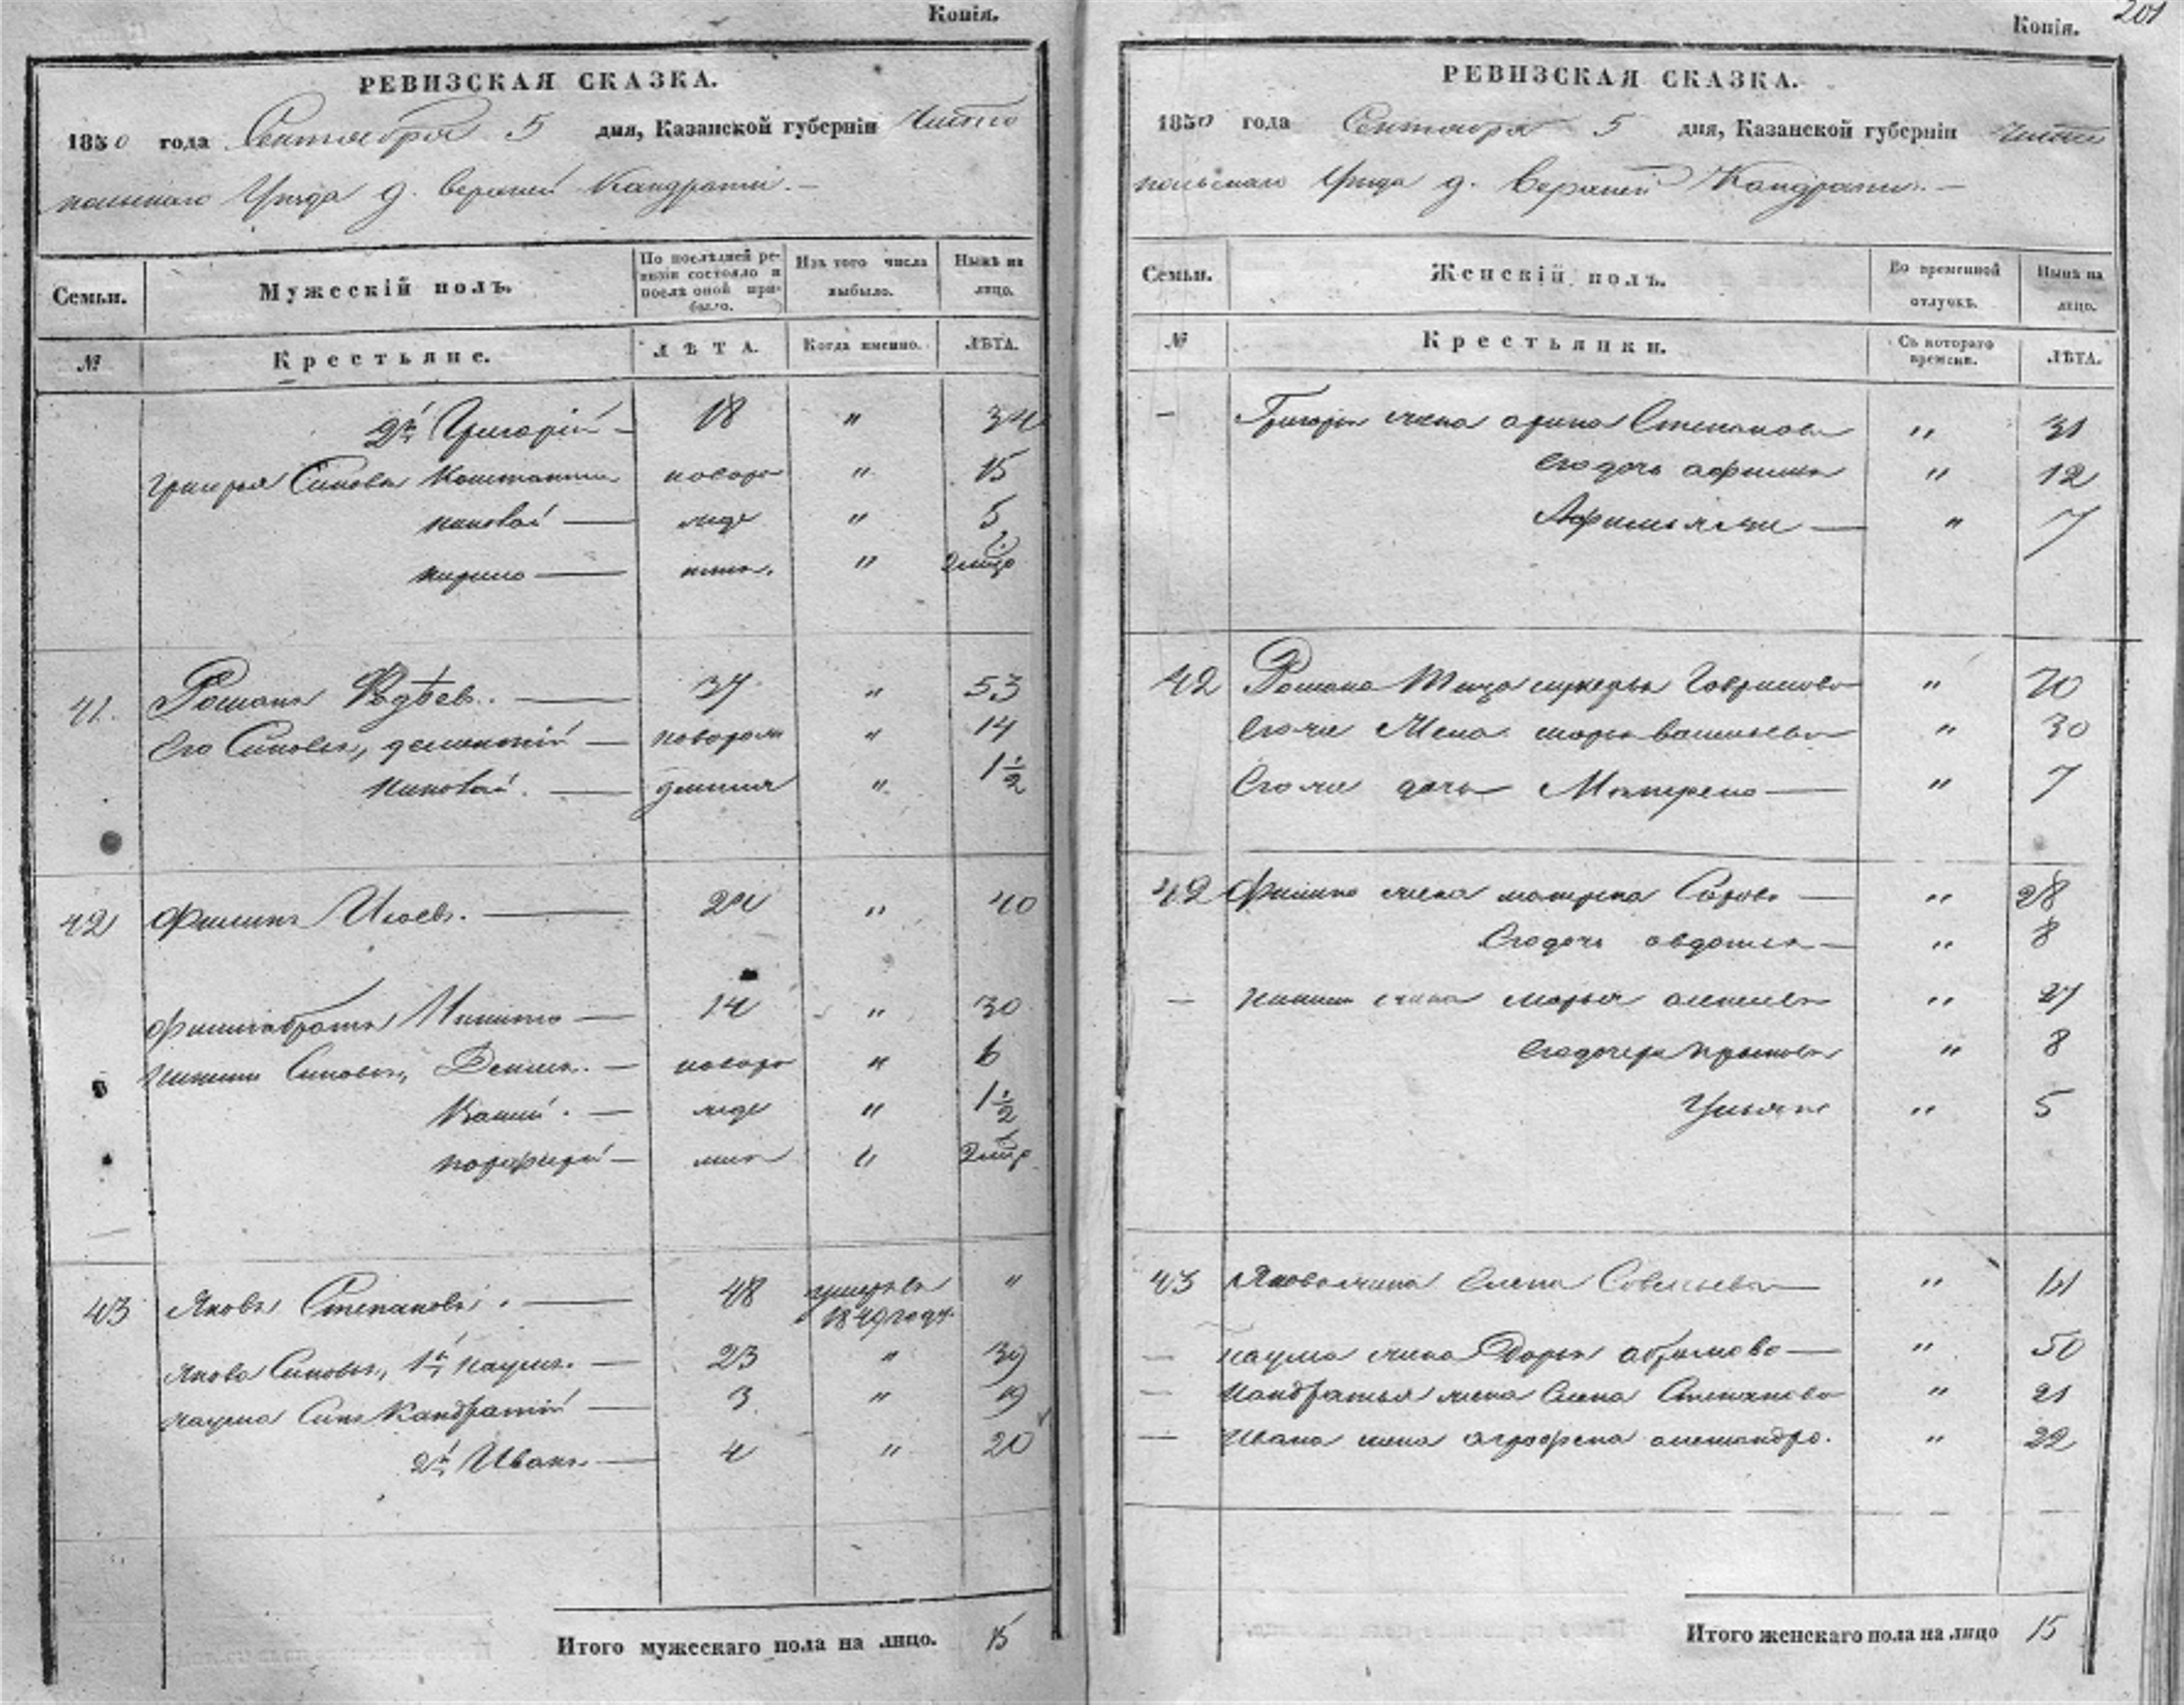 Копія.
РЕВИЗСКАЯ СКАЗКА.
1850 года Сентября 5 дня, Казанской губерніи Чисто
польскаго Уезда д. Верхней Кандраты. —
Семьи. Мужескій полъ. По послѣдней ревизіи состояло и послѣ оной прибыло. Изъ того числа выбыло. Нынѣ на лицо.
№ Крестьяне. ЛѢТА. Когда именно. ЛѢТА.
2й Григорій — 18 " 34
Григорья Сыновья Константин новоро " 15
Николай — жде " 5
Кирило — нные. "
41. Романъ Фадѣев. — 37 " 53
Его Сыновья, Дементій — новорож " 14
Николай. — денныя " 1 1/2
42 Филипъ Исаевъ. — 24 " 40
Филипа братъ Никита — 14 " 30
Никиты Сыновья, Денисъ. — новоро " 6
— жде " 1 1/2
Порфирій — нные "
43 Яковъ Степановъ. — 48 умеръ въ 1849 году. "
Якова Сыновья, 1й Наумъ. — 23 " 39
Наума Сынъ Кандратій — 3 " 19
2й Иванъ — 4 " 20
Итого мужескаго пола на лицо. 15
Копія. 201
РЕВИЗСКАЯ СКАЗКА.
1850 года Сентября 5 дня, Казанской губерніи Чисто
польскаго Уезда д. Верхней Кандраты. —
Семьи. Женскій полъ. Во временной отлучкѣ. Нынѣ на лицо.
№ Крестьянки. Съ котораго времени. ЛѢТА.
— Григорья жена Арина Степанова " 31
Его дочь " 12
— " 7
42 Романа Гаврилова " 70
Его же Жена Марья Васильева " 30
Его же дочь Матрена — " 7
42 Филипа жена Матрена — " 28
Его дочь Авдотья — " 8
— Никиты жена Марья " 27
Его дочери " 8
Ульяна " 5
43 Якова жена Елена Савельева — " 41
— Наума жена Дарья Абрамова — " 50
— Кандратья жена Елена Степанова " 21
— Ивана жена Аграфена Александро. " 22
Итого женскаго пола на лицо 15